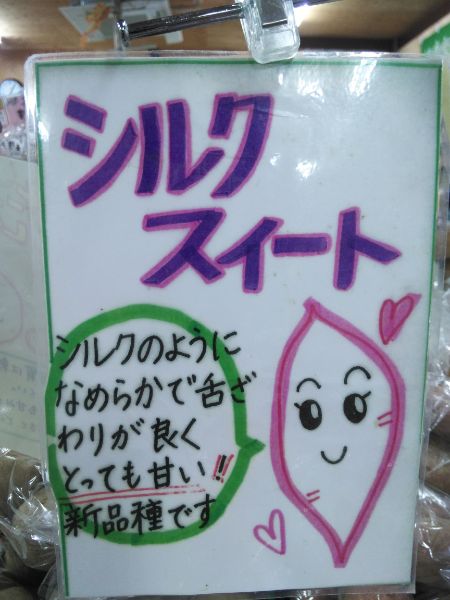 シルク
スィート
シルクのように
なめらかで舌ざ
わりが良く
とっても甘い!!
新品種です